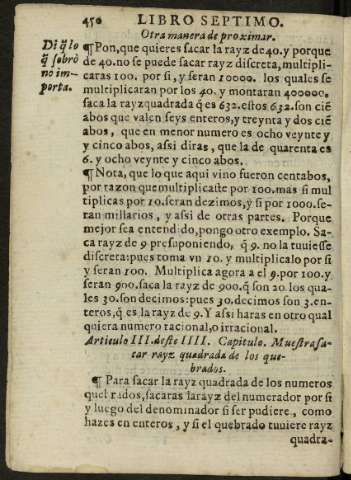 450 LIBRO SEPTIMO.
Otra manera de proximar.
Di q̃ lo
q̃ sobrò
no im-
porta.
¶Pon, que quieres sacar la rayz de 40. y porque
de 40. no se puede sacar rayz discreta, multipli-
caras 100. por si, y seran 10000. los quales se
multiplicaran por los 40. y montaran 400000.
saca la rayz quadrada q̃ es 632. estos 632. son ciẽ
abos que valen seys enteros, y treynta y dos ciẽ
abos, que en menor numero es ocho veynte y
y cinco abos, assi diras, que la de quarenta es
6. y ocho veynte y cinco abos.
¶Nota, que lo que aqui vino fueron centabos,
por razon que multiplicaste por 100. mas si mul
tiplicas por 10. seran dezimos, y si por 1000. se-
ran millarios, y assi de otras partes. Porque
mejor sea entendido, pongo otro exemplo. Sa-
ca rayz de 9 presuponiendo, q̃ 9. no la tuuiesse
discreta: pues toma vn 10. y multiplicalo por si
y seran 100. Multiplica agora a el 9. por 100. y
seran 900. saca la rayz de 900. q̃ son 20. los qua-
les 30. son decimos: pues 30. decimos son 3. en-
teros, q̃ es la rayz de 9. Y assi haras en otro qual
quiera numero racional, o irracional.
Articulo III. deste IIII. Capitulo. Muestra sa-
car rayz quadrada de los que-
brados.
¶ Para sacar la rayz quadrada de los numeros
quebrados, sacaras la rayz del numerador por si
y luego del denominador si ser pudiere, como
hazes en enteros, y si el quebrado tuuiere rayz
quadra-